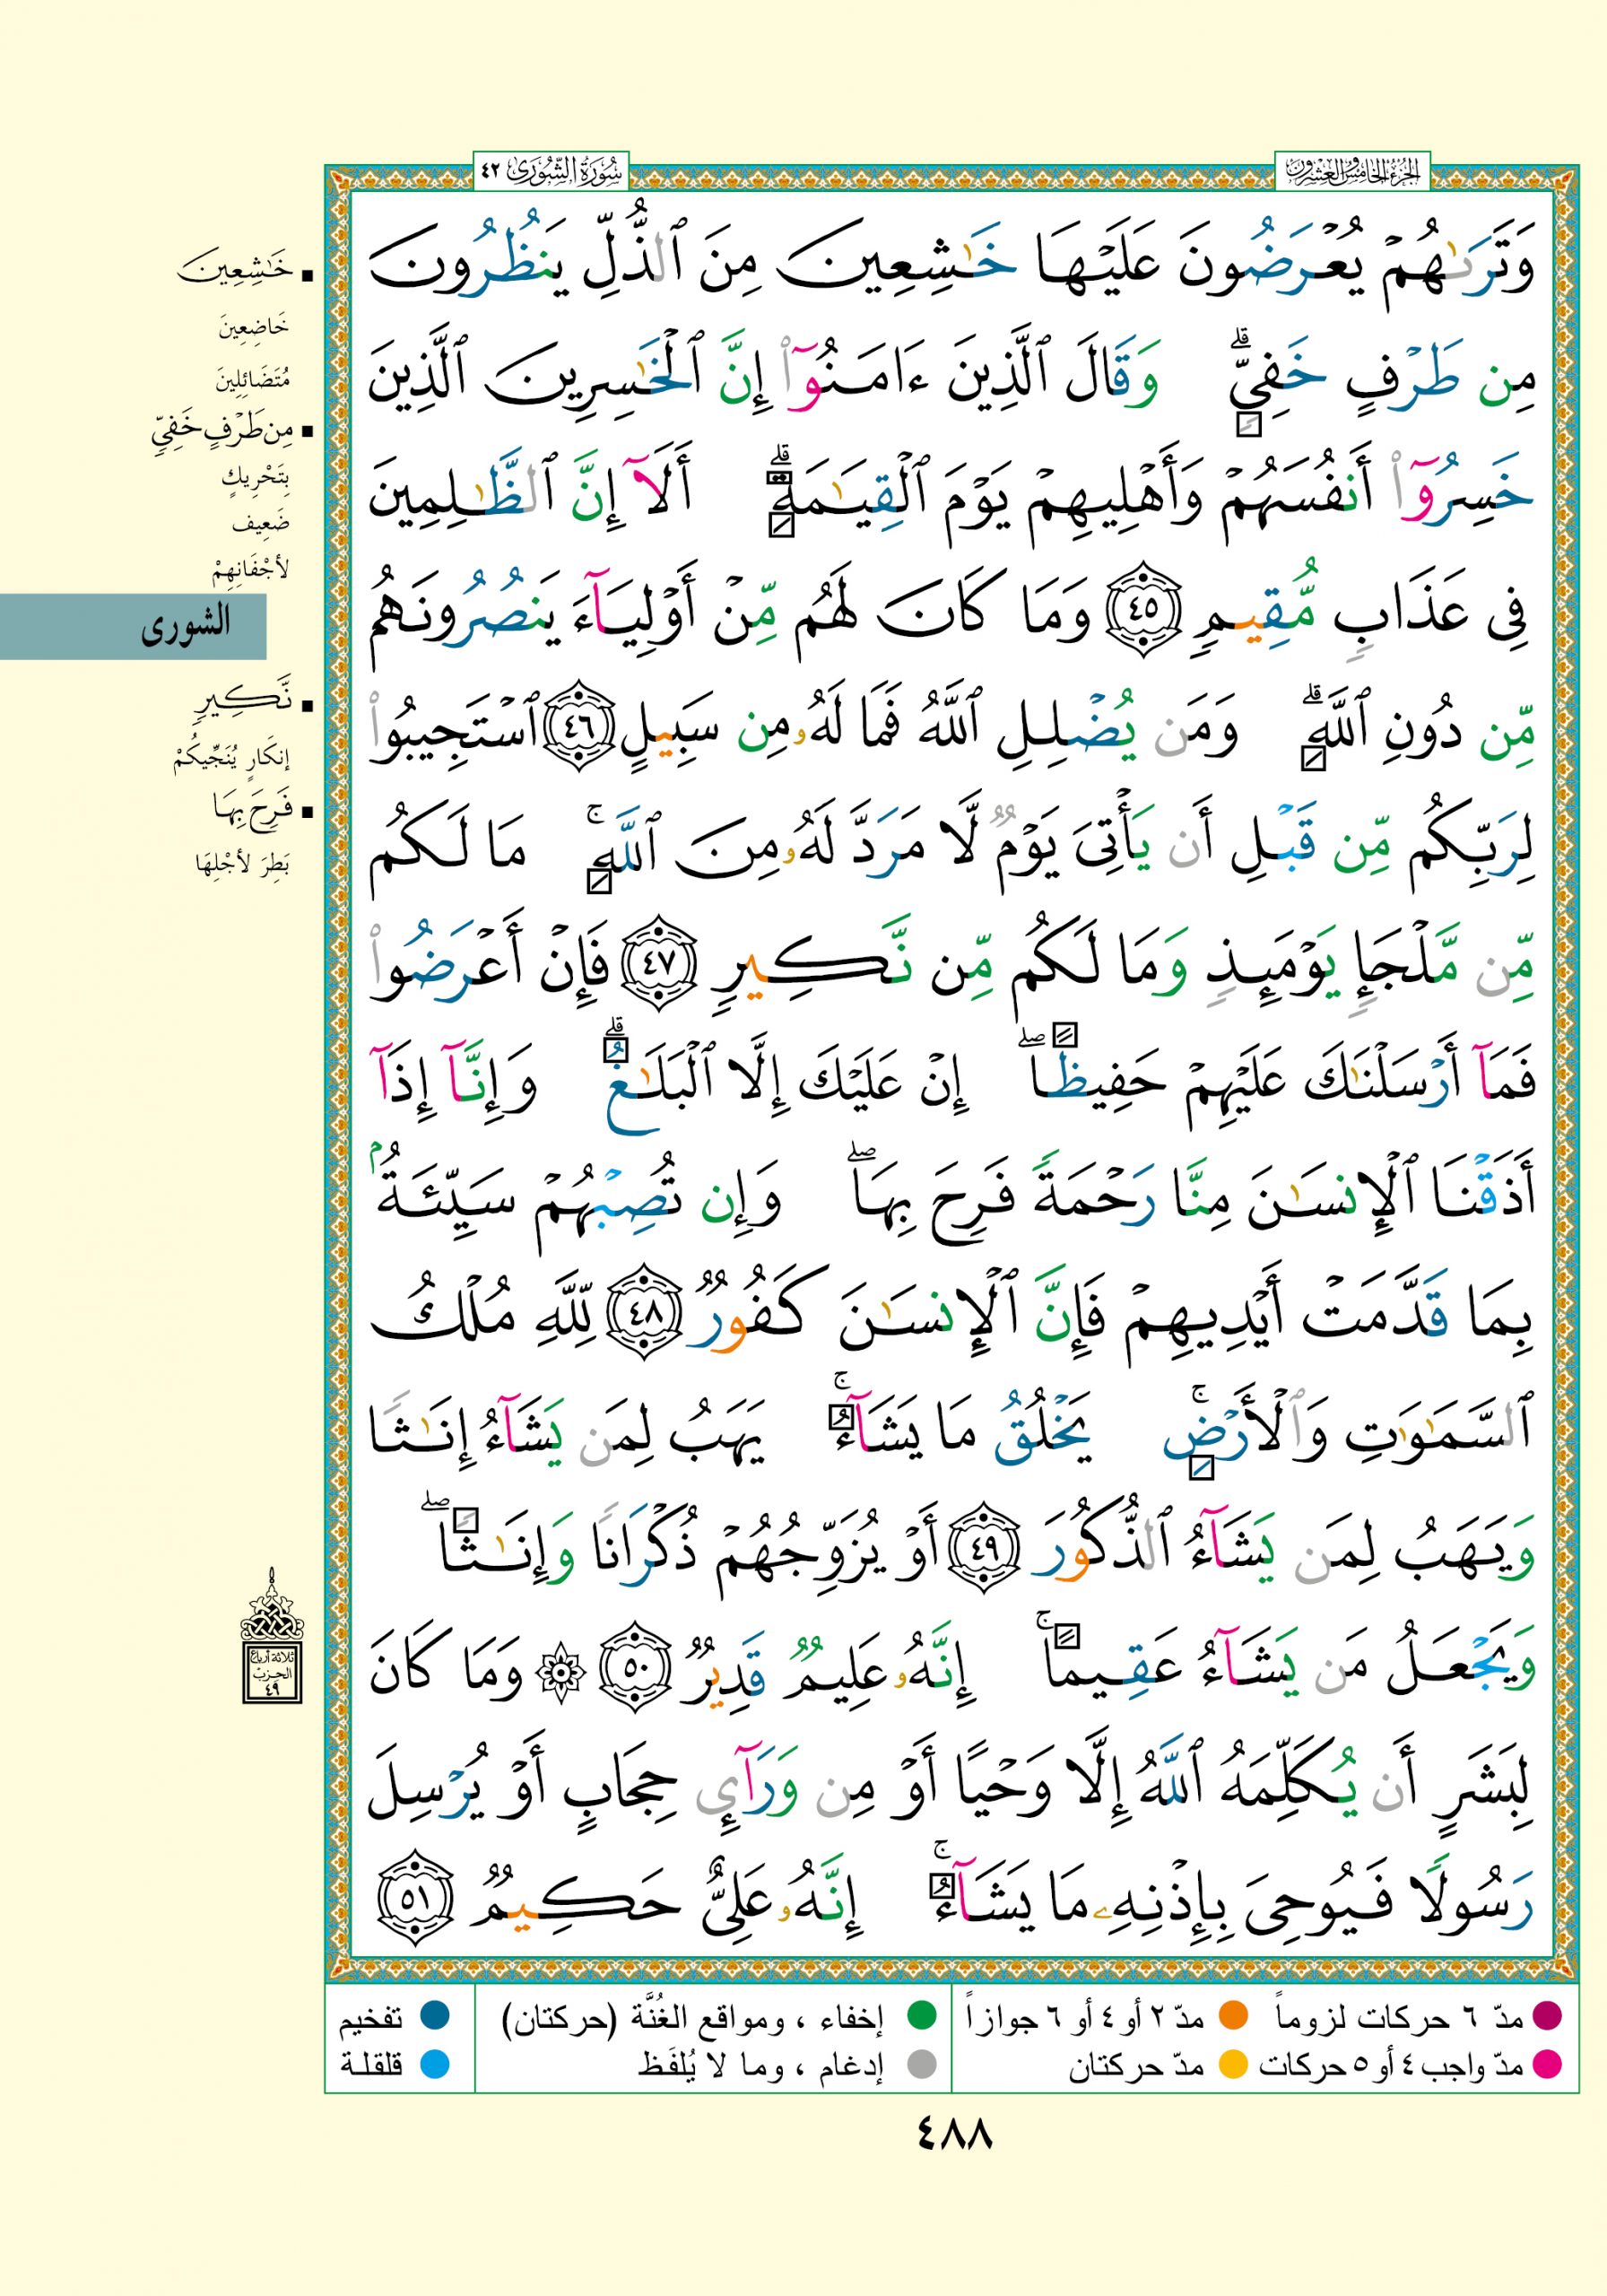 الجزء الخامس والعشرون
سُورَةُ الشُّورَىٰ ٤٢
وَتَرَىٰهُمْ يُعْرَضُونَ عَلَيْهَا خَٰشِعِينَ مِنَ ٱلذُّلِّ يَنظُرُونَ
مِن طَرْفٍ خَفِىٍّۗ وَقَالَ ٱلَّذِينَ ءَامَنُوٓا۟ إِنَّ ٱلْخَٰسِرِينَ ٱلَّذِينَ
خَسِرُوٓا۟ أَنفُسَهُمْ وَأَهْلِيهِمْ يَوْمَ ٱلْقِيَٰمَةِۗ أَلَآ إِنَّ ٱلظَّٰلِمِينَ
فِى عَذَابٍ مُّقِيمٍ ٤٥ وَمَا كَانَ لَهُم مِّنْ أَوْلِيَآءَ يَنصُرُونَهُم
مِّن دُونِ ٱللَّهِۗ وَمَن يُضْلِلِ ٱللَّهُ فَمَا لَهُۥ مِن سَبِيلٍ ٤٦ ٱسْتَجِيبُوا۟
لِرَبِّكُم مِّن قَبْلِ أَن يَأْتِىَ يَوْمٌ لَّا مَرَدَّ لَهُۥ مِنَ ٱللَّهِۚ مَا لَكُم
مِّن مَّلْجَإٍ يَوْمَئِذٍ وَمَا لَكُم مِّن نَّكِيرٍ ٤٧ فَإِنْ أَعْرَضُوا۟
فَمَآ أَرْسَلْنَٰكَ عَلَيْهِمْ حَفِيظًاۖ إِنْ عَلَيْكَ إِلَّا ٱلْبَلَٰغُۗ وَإِنَّآ إِذَآ
أَذَقْنَا ٱلْإِنسَٰنَ مِنَّا رَحْمَةً فَرِحَ بِهَاۖ وَإِن تُصِبْهُمْ سَيِّئَةٌۢ
بِمَا قَدَّمَتْ أَيْدِيهِمْ فَإِنَّ ٱلْإِنسَٰنَ كَفُورٌ ٤٨ لِّلَّهِ مُلْكُ
ٱلسَّمَٰوَٰتِ وَٱلْأَرْضِۚ يَخْلُقُ مَا يَشَآءُۚ يَهَبُ لِمَن يَشَآءُ إِنَٰثًا
وَيَهَبُ لِمَن يَشَآءُ ٱلذُّكُورَ ٤٩ أَوْ يُزَوِّجُهُمْ ذُكْرَانًا وَإِنَٰثًاۖ
وَيَجْعَلُ مَن يَشَآءُ عَقِيمًاۚ إِنَّهُۥ عَلِيمٌ قَدِيرٌ ٥٠ ۞ وَمَا كَانَ
لِبَشَرٍ أَن يُكَلِّمَهُ ٱللَّهُ إِلَّا وَحْيًا أَوْ مِن وَرَآئِ حِجَابٍ أَوْ يُرْسِلَ
رَسُولًا فَيُوحِىَ بِإِذْنِهِۦ مَا يَشَآءُۚ إِنَّهُۥ عَلِىٌّ حَكِيمٌ ٥١
خَٰشِعِينَ
خَاضِعِينَ
مُتَضَائِلِينَ
مِن طَرْفٍ خَفِيٍّ
بِتَحْرِيكٍ
ضَعِيف
لأجْفَانِهِمْ
الشورى
نَّكِيرٍ
إنكَارٍ يُنَجِّيكُمْ
فَرِحَ بِهَا
بَطِرَ لأجْلِهَا
ثلاثة أرباع
الحزب
٤٩
مدّ ٦ حركات لزوماً مدّ ٢ أو ٤ أو ٦ جوازاً إخفاء ، ومواقع الغُنَّة (حركتان) تفخيم
مدّ واجب ٤ أو ٥ حركات مدّ حركتان إدغام ، وما لا يُلفَظ قلقلة
٤٨٨